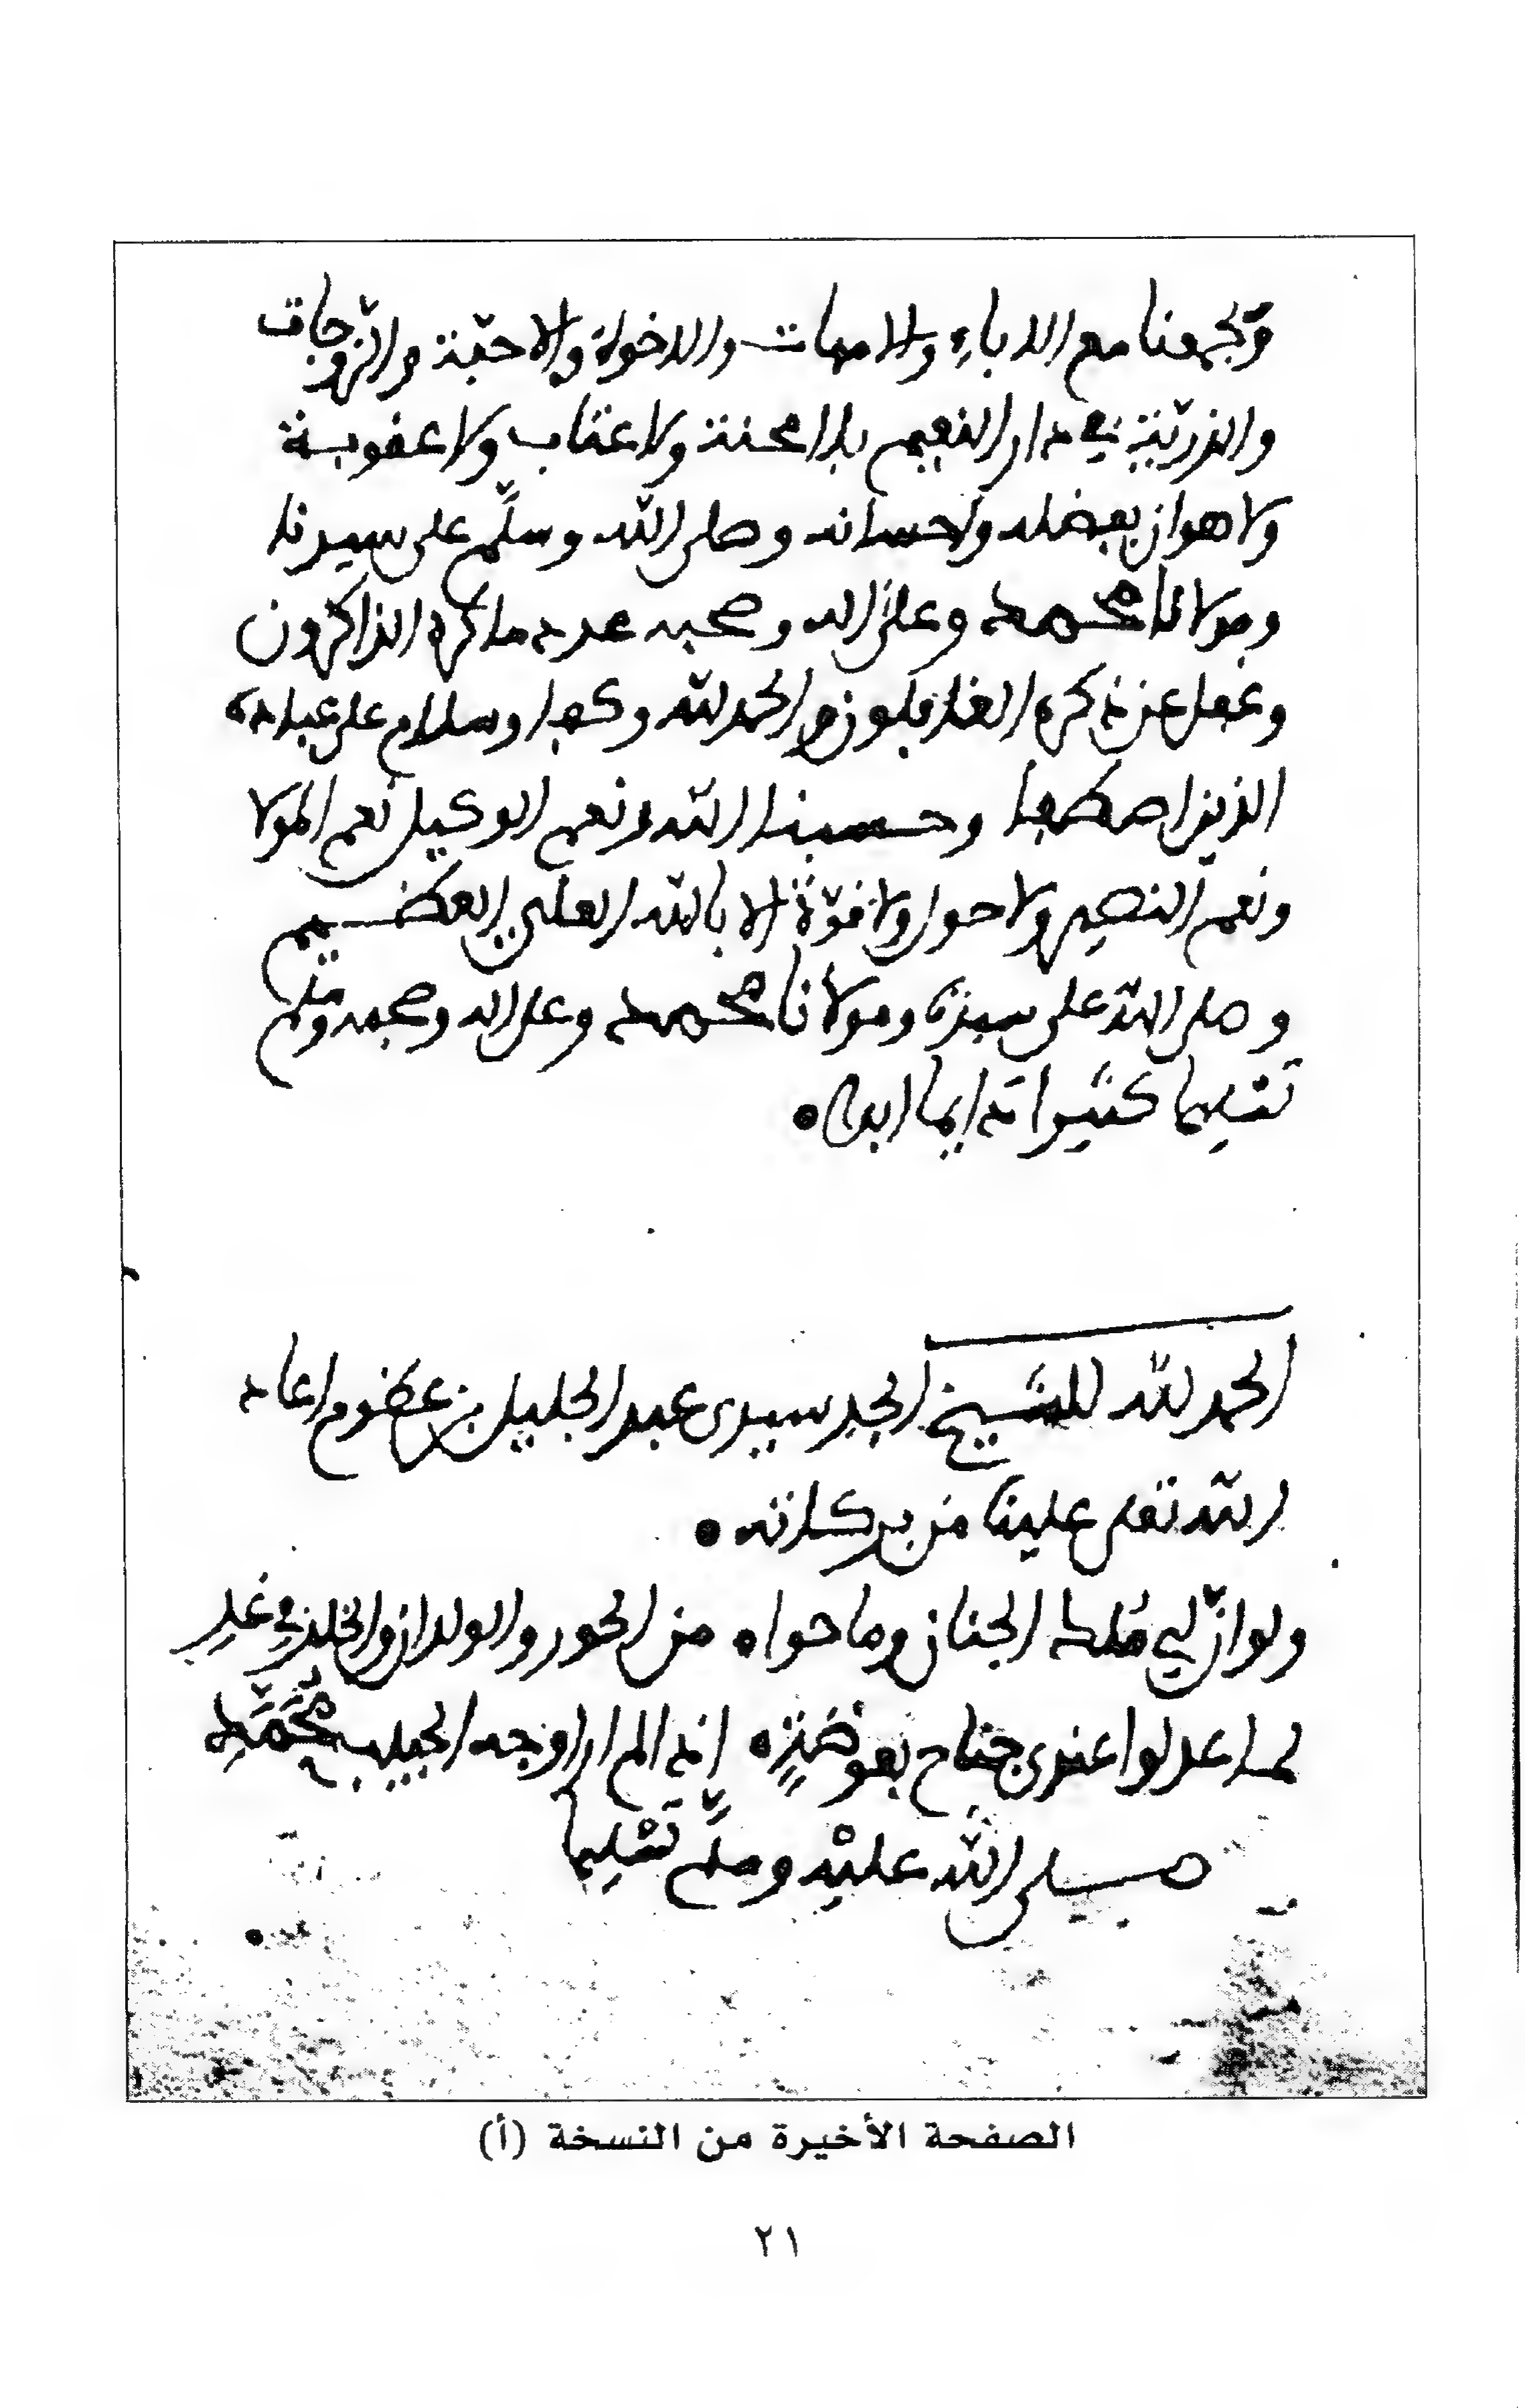 ويجمعنا مع الاباء والامهات والاخوة والاحبّة والزّوجات
والذريّة في دار النعيم بلا محنة ولا عقاب ولا عقوبة
ولا هوان بفضله واحسانه وصلى اللّه وسلّم على سيدنا
ومولانا محمد وعلى اله وصحبه عدد ما ذكره الذاكرون
وغفل عن ذكره الغافلون والحمد للّه وكفى وسلام على عباده
الذين اصطفى وحسبنا اللّه ونعم الوكيل نعم المولا
ونعم النصير ولا حول ولا قوّة الا باللّه العلي العظيم
وصلى اللّه على سيدنا ومولانا محمد وعلى اله وصحبه وسلم
تسليما كثيرا دايما ابدا
الحمد للّه للشيخ الجد سيدي عبد الجليل بن عظوم اعاد
اللّه تعلى علينا من بركاته
ولو انّ لي ملك الجنان وما حواه من الحور والولدان والخلد في غد
لما عدلوا عندي جناح بعوضة اذا لم ارا وجه الحبيب محمّد
صلى اللّه عليه وسلّم تسليما
الصفحة الأخيرة من النسخة (أ)
٢١